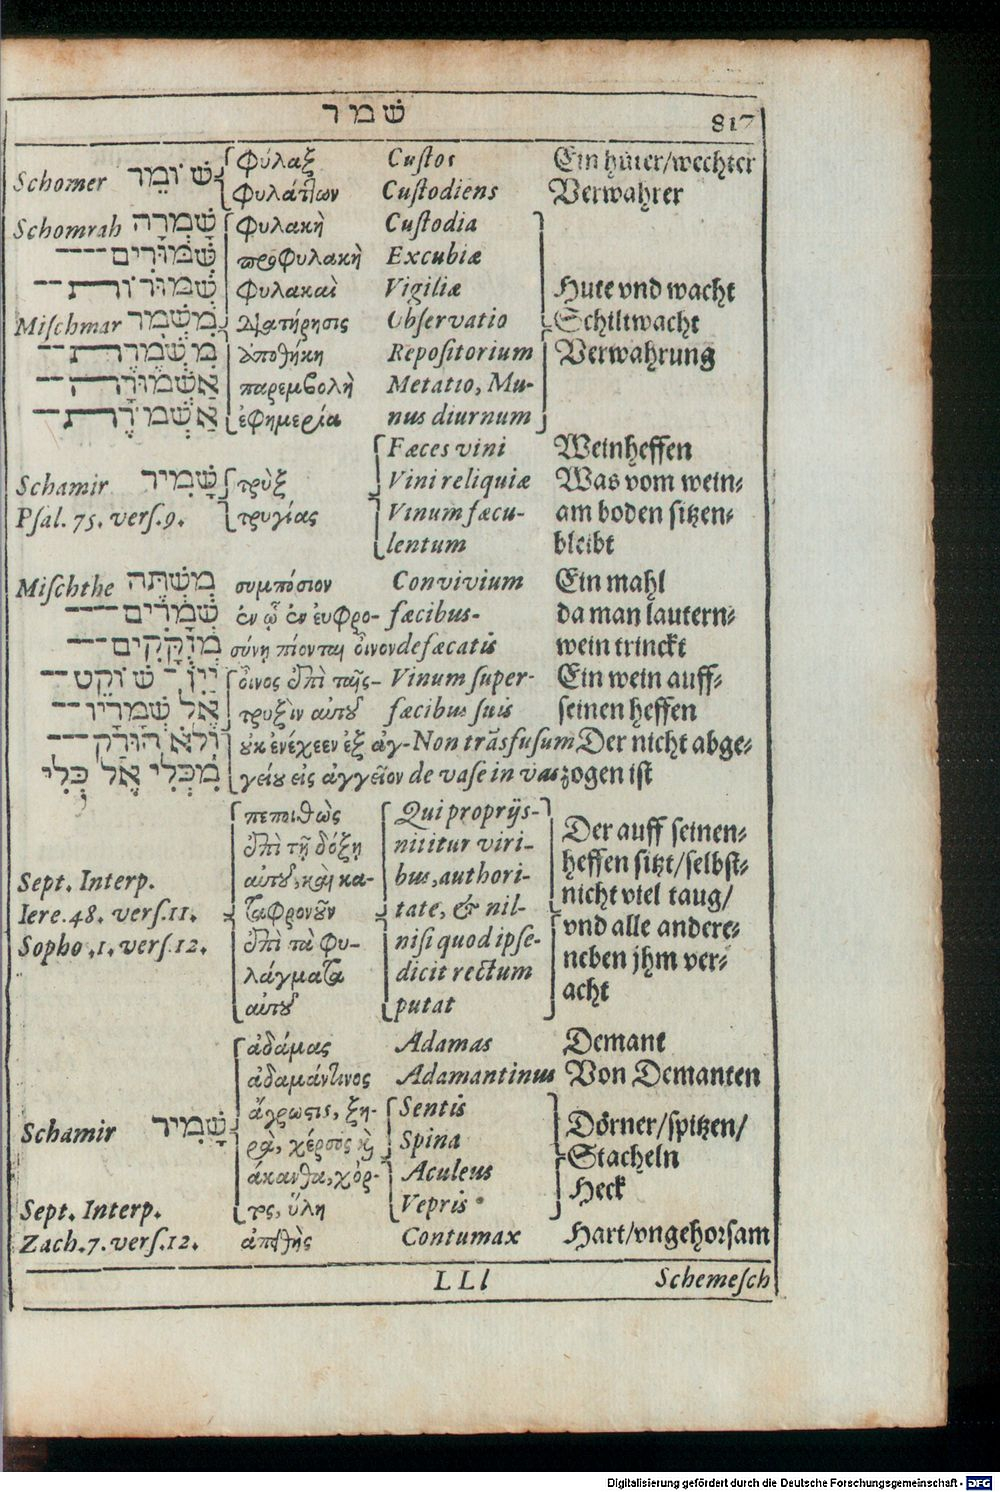 שׁמר 817
Schomer שׁוֹמֵר φύλαξ Cuſtos Ein hüter/wechter
φυλάττων Cuſtodiens Verwahrer
Schomrah שָׁמְרָה φυλακὴ Cuſtodia
שִׁמּוּרִים---- προφυλακὴ Excubiæ
שִׁמּוּרוֹת-- φυλακαὶ Vigiliæ Hute vnd wacht
Miſchmar מִשְׁמָר διατήρησις Obſervatio Schiltwacht
מִשְׁמֶרֶת-- ἀποθήκη Repoſitorium Verwahrung
אַשְׁמוּרָה-- παρεμβολὴ Metatio, Mu-
אַשְׁמֹרֶת-- ἐφημερία nus diurnum
Fæces vini Weinheffen
Schamir שָׁמִיר τρὺξ Vini reliquiæ Was vom wein⸗
Pſal. 75. verſ.9. τρυγίας Vinum fæcu- am boden ſitzen⸗
lentum bleibt
Miſchthe מִשְׁתֵּה συμπόσιον Convivium Ein mahl
שְׁמָרִים---- ἐν ᾧ ἐν ἐυφρο- fæcibus- da man lautern⸗
מְזֻקָּקִים--- σύνῃ πίονται οἶνον defæcatis wein trinckt
יַיִן - שׁוֹקֵט-- οἶνος ἐπὶ ταῖς- Vinum ſuper- Ein wein auff⸗
אֶל שְׁמָרָיו-- τρυξὶν αὐτοῦ fæcibus ſuis ſeinen heffen
וְלֹא הוּרַק--- οὐκ ἐνέχεεν ἐξ ἀγ- Non trãsfuſum Der nicht abge⸗
מִכְּלִי אֶל כְּלִי γείου εἰς ἀγγεῖον de vaſe in vas zogen iſt
πεποιθὼς Qui proprijs-
ἐπὶ τῇ δόξῃ nititur viri- Der auff ſeinen⸗
αὐτοῦ, καὶ κα- bus, authori- heffen ſitzt/ſelbſt⸗
Sept. Interp. ταφρονῶν tate, & nil- nicht viel taug/
Iere.48. verſ.11. ἐπὶ τὰ φυ- niſi quod ipſe- vnd alle andere⸗
Sopho .1. verſ.12. λάγματα dicit rectum neben jhm ver⸗
αὐτοῦ putat acht
ἀδάμας Adamas Demant
ἀδαμάντινος Adamantinus Von Demanten
ἄγρωστις, ξη- Sentis
Schamir שָׁמִיר ρὰ, χέρσος καὶ Spina Dörner/ſpitzen/
ἄκανθα, χόρ- Aculeus Stacheln
Sept. Interp. τος, ὕλη Vepris Heck
Zach.7. verſ.12. ἀπειθὴς Contumax Hart/vngehorſam
LLl Schemeſch
Digitalisierung gefördert durch die Deutsche Forschungsgemeinschaft - DFG